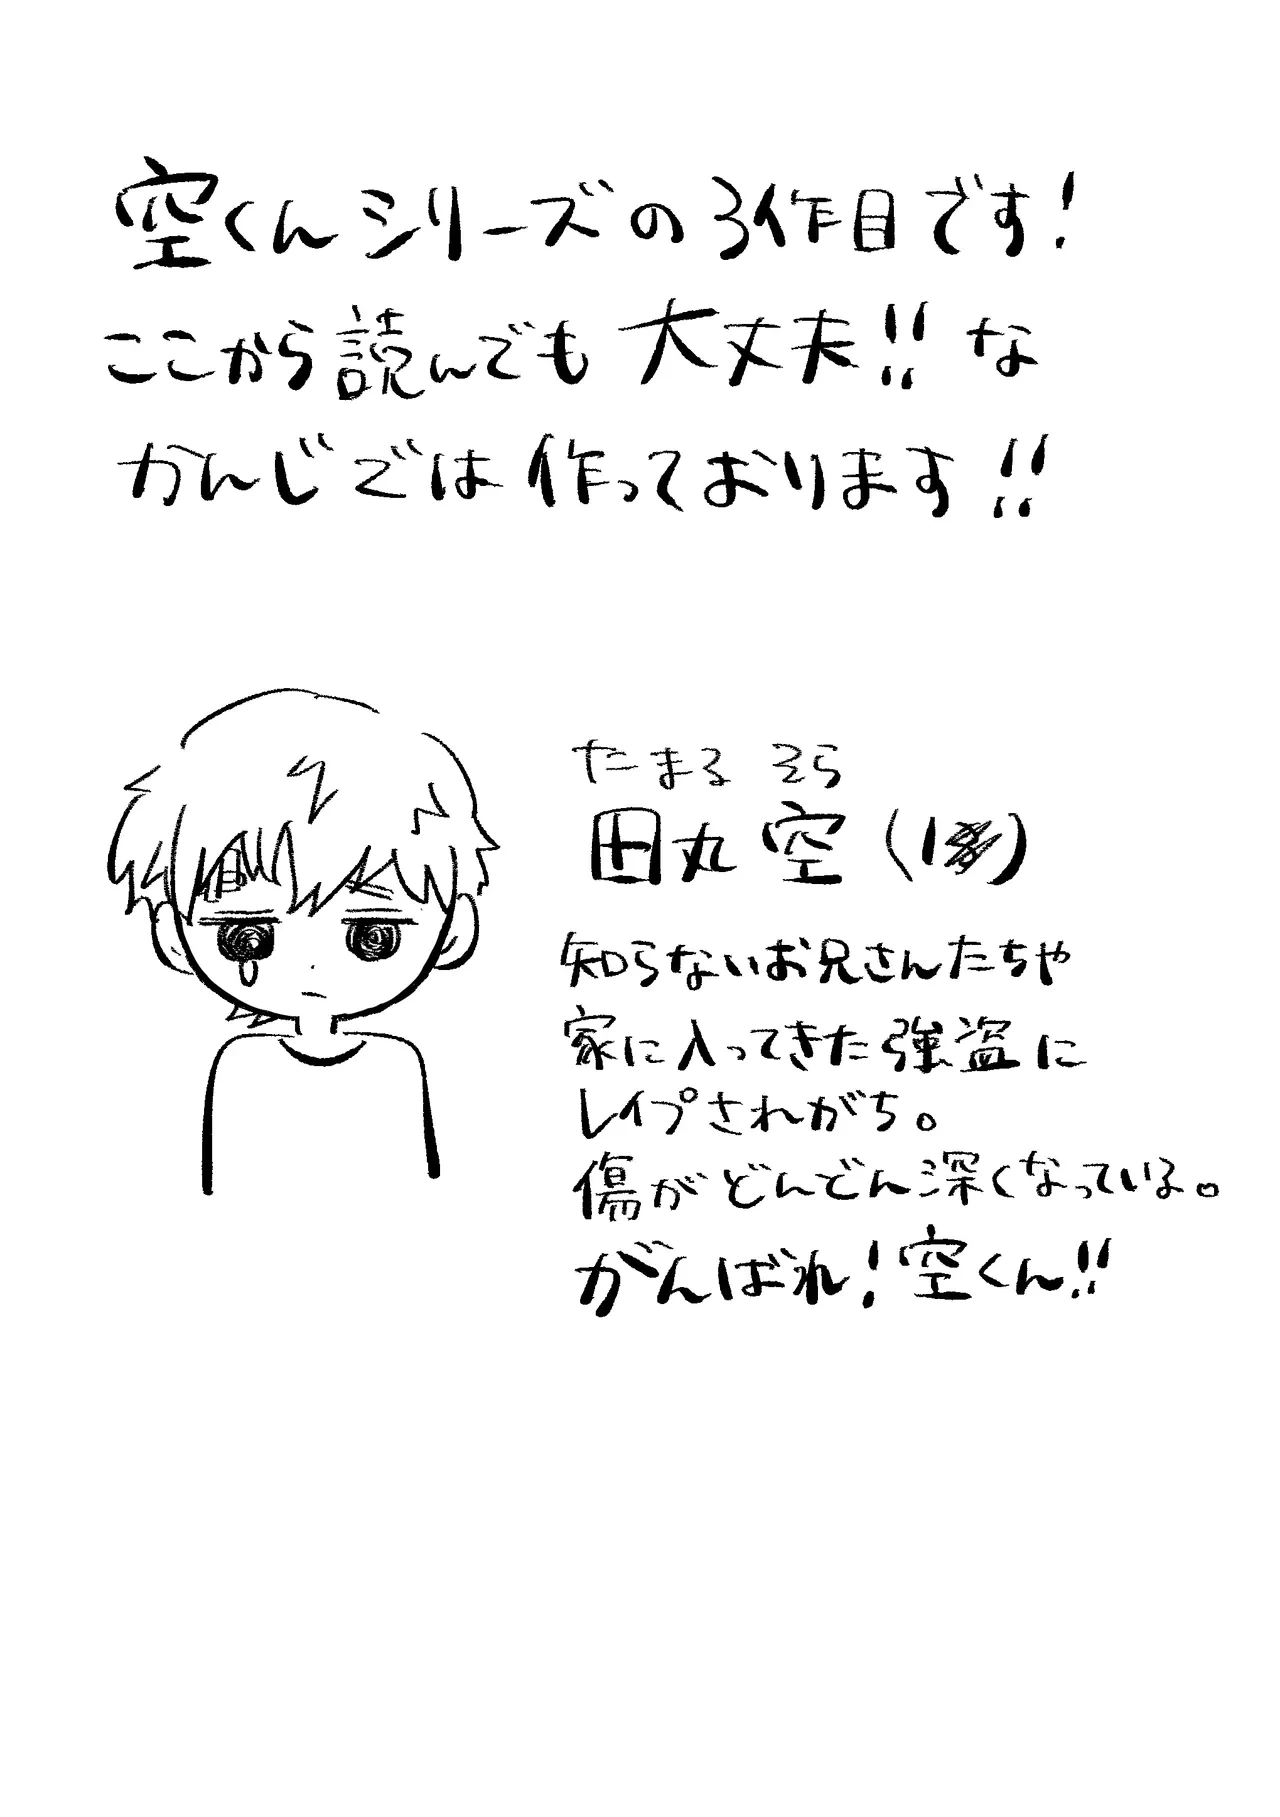 空くんシリーズの3作目です!
ここから読んでも大丈夫!!な
かんじでは作っております!!
たまる そら
田丸 空(1
知らないお兄さんたちや
家に入ってきた強盗に
レイプされがち。
傷がどんどん深くなっている。
がんばれ!空くん!!